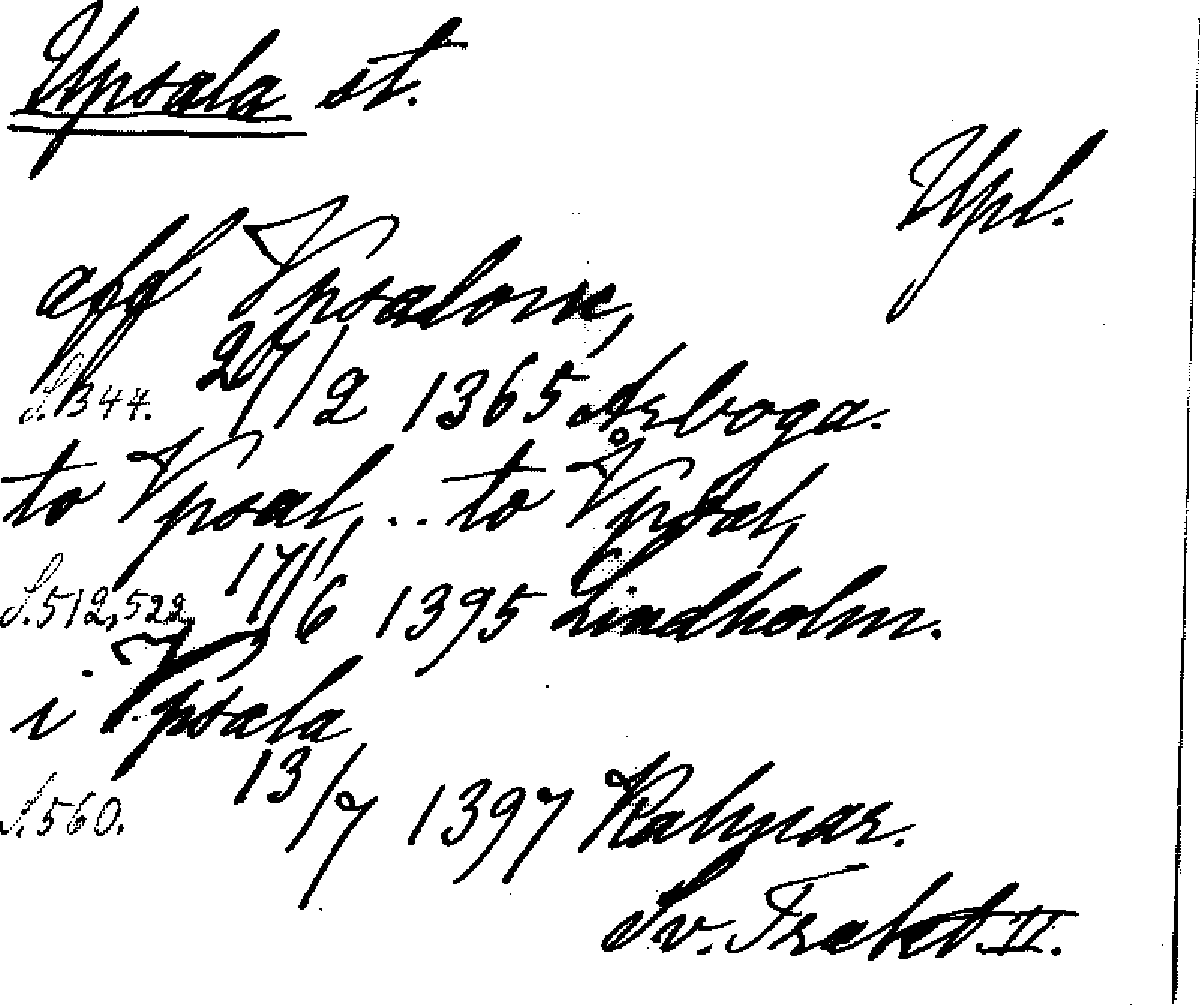 Upsala st.
Upl.
aff Vpsalom,
S. 344. 27/2 1365 Arboga.
to Vpsal, .. to Vpsal,
S. 512, 522, 17/6 1395 Lindholm.
i Vpsala
S. 560. 13/7 1397 Kalmar.
Sv. Trakt. II.